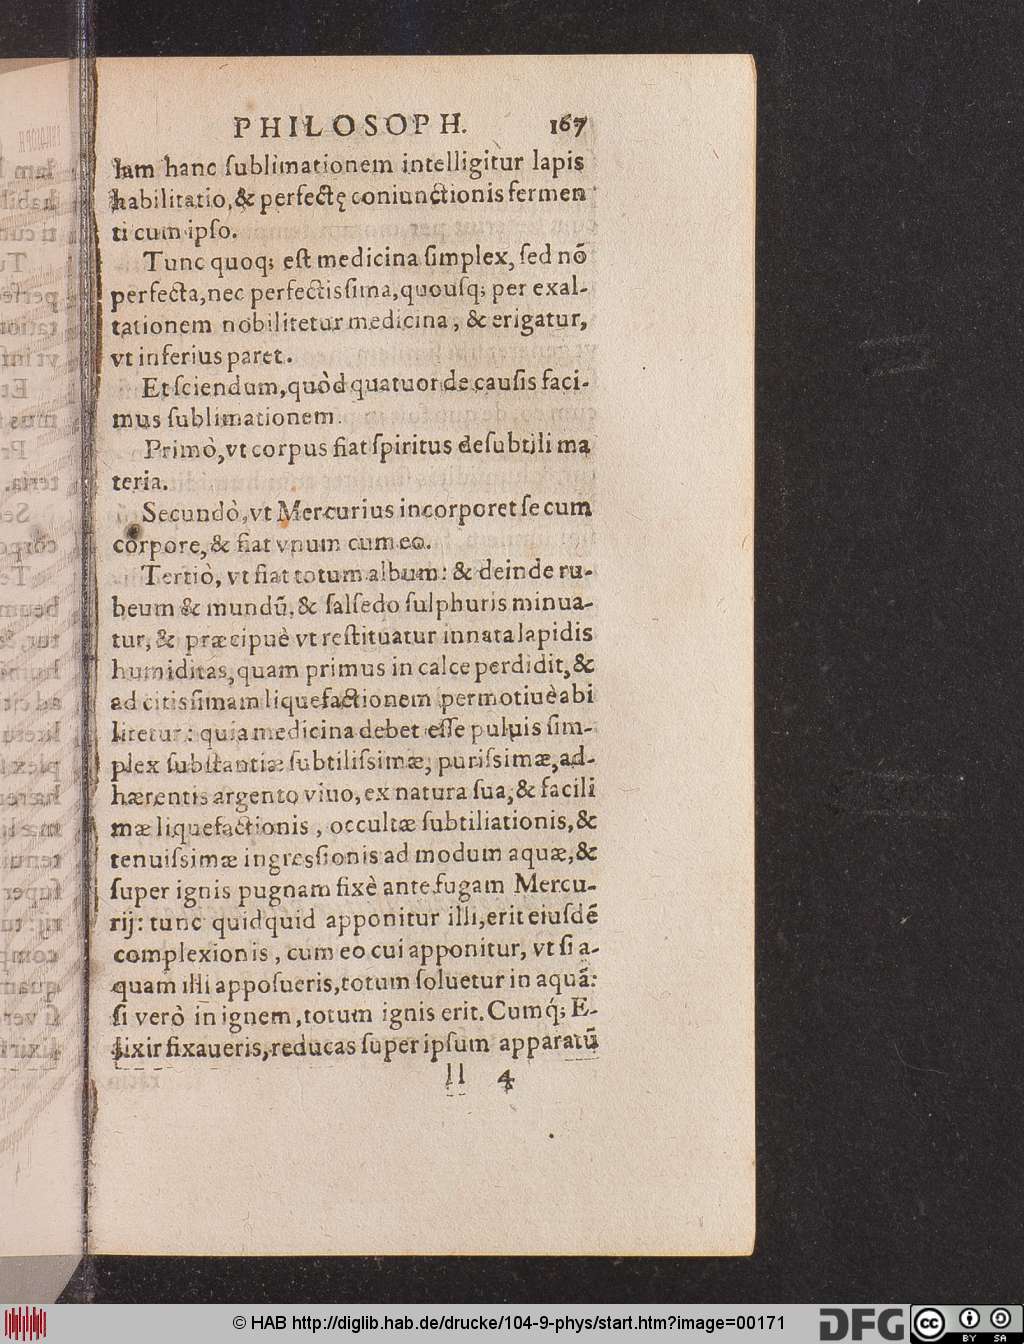 PHILOSOPH. 167
lam hanc ſublimationem intelligitur lapis
habilitatio,& perfectę coniunctionis fermen
ti cum ipſo.
Tunc quoq; eſt medicina ſimplex, ſed nō
perfecta,nec perfectisſima,quouſq; per exal-
tationem nobilitetur medicina, & erigatur,
vt inferius paret.
Et ſciendum,quòd quatuor de cauſis faci-
mus ſublimationem.
Primò,vt corpus fiat ſpiritus de ſubtili ma
teria.
Secundò,vt Mercurius incorporet ſe cum
corpore,& fiat vnum cum eo.
Tertiò, vt fiat totum album: & deinde ru-
beum & mundū,& ſalſedo ſulphuris minua-
tur, & præcipuè vt reſtituatur innata lapidis
humiditas,quam primus in calce perdidit,&
ad citisſimam liquefactionem permotiuè abi
litetur: quia medicina debet eſſe puluis ſim-
plex ſubſtantiæ ſubtiliſsimæ, puriſsimæ,ad-
hærentis argento viuo,ex natura ſua,& facili
mæ liquefactionis, occultæ ſubtiliationis,&
tenuiſsimæ ingresſionis ad modum aquæ,&
ſuper ignis pugnam fixè ante fugam Mercu-
rij: tunc quidquid apponitur illi,erit eiuſdē
complexionis, cum eo cui apponitur, vt ſi a-
quam illi appoſueris,totum ſoluetur in aquā:
ſi verò in ignem,totum ignis erit. Cumq́; E-
lixir fixaueris,reducas ſuper ipſum apparatū
ll 4
© HAB http://diglib.hab.de/drucke/104-9-phys/start.htm?image=00171
DFG
cc BY SA